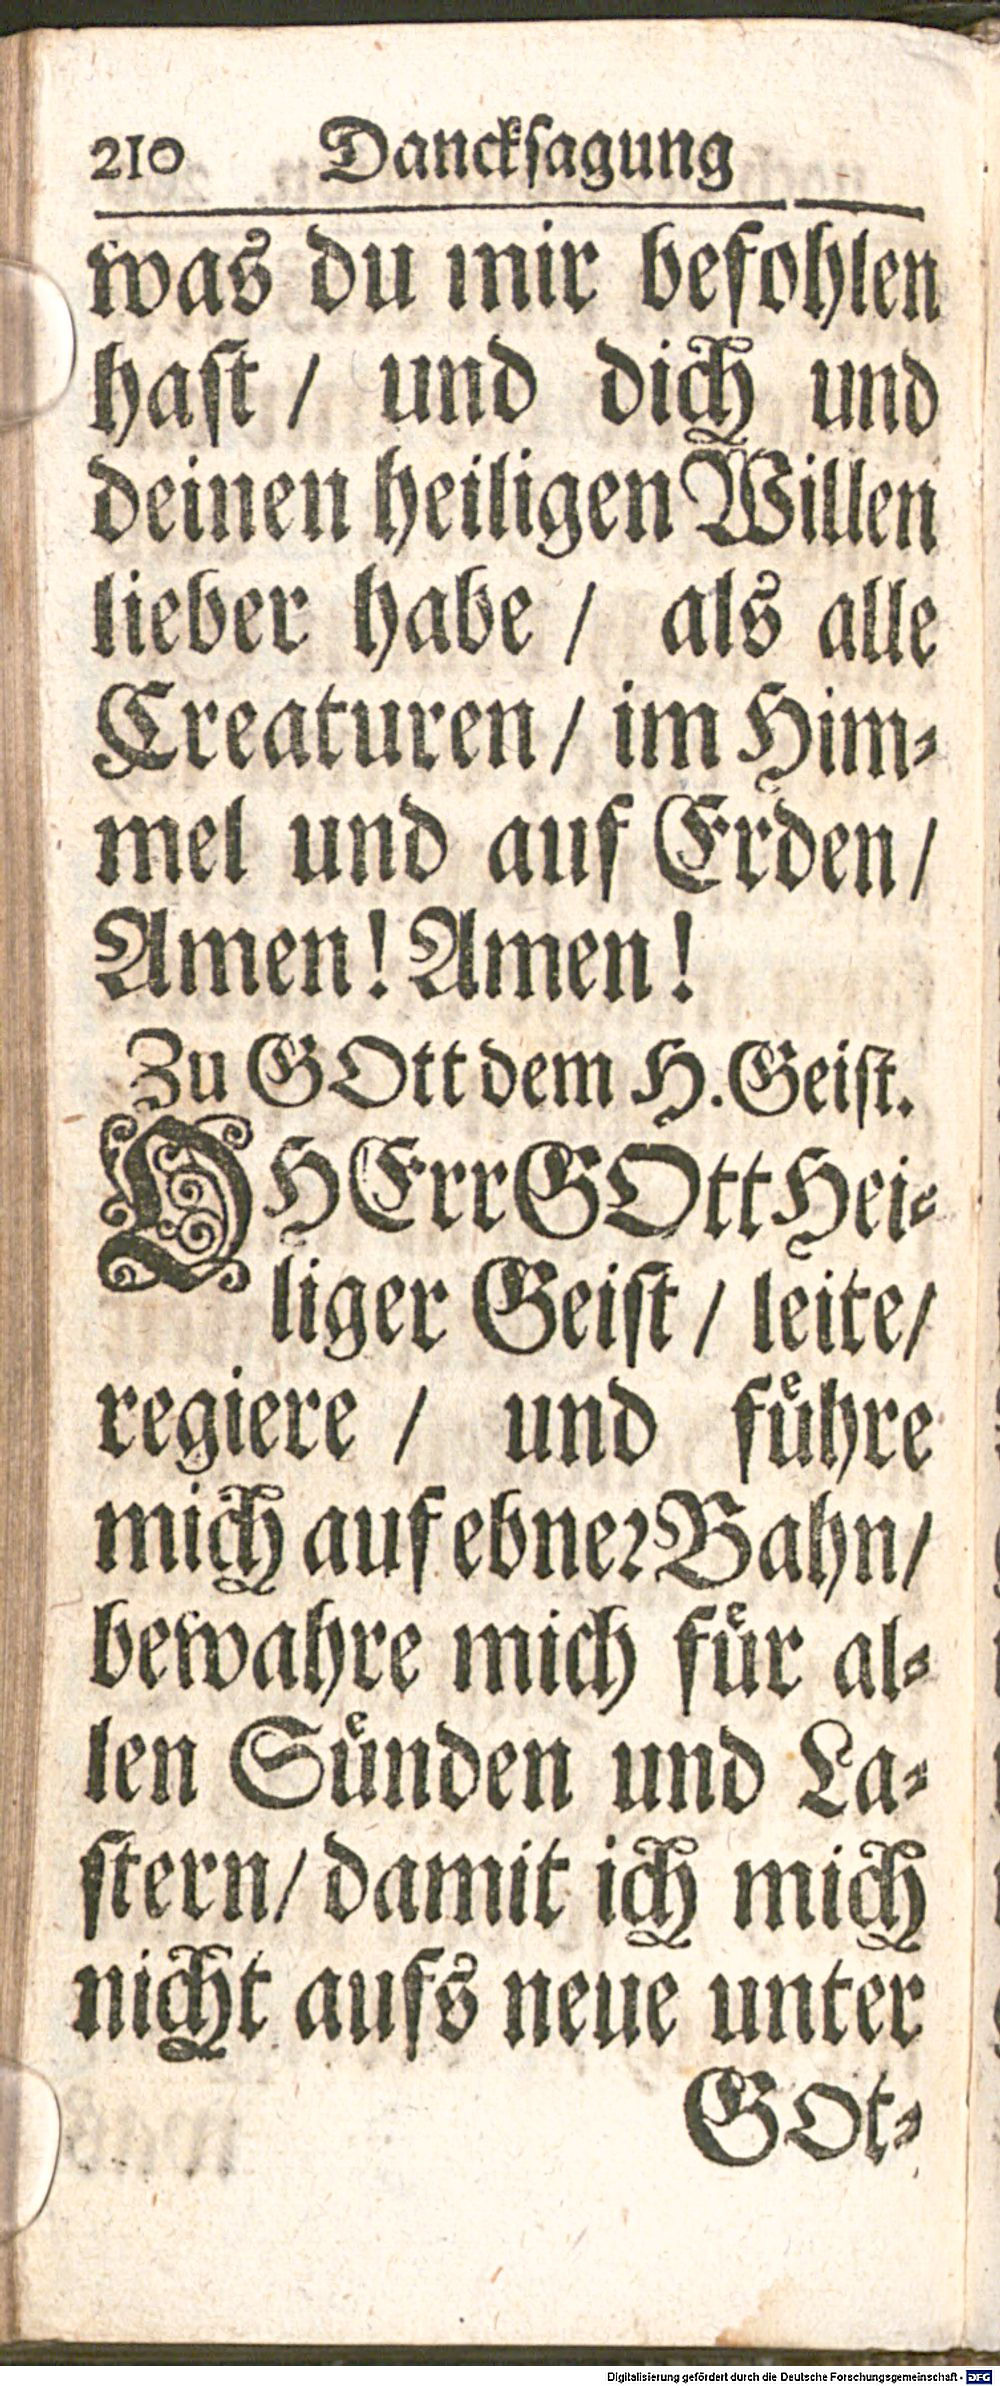 210 Danckſagung
was du mir befohlen
haſt / und dich und
deinen heiligen Willen
lieber habe / als alle
Creaturen / im Him⸗
mel und auf Erden /
Amen! Amen!
Zu GOtt dem H. Geiſt.
O HErr GOtt Hei⸗
liger Geiſt / leite /
regiere / und fuͤhre
mich auf ebner Bahn /
bewahre mich fuͤr al⸗
len Suͤnden und La⸗
ſtern / damit ich mich
nicht aufs neue unter
GOt⸗
Digitalisierung gefördert durch die Deutsche Forschungsgemeinschaft - DFG